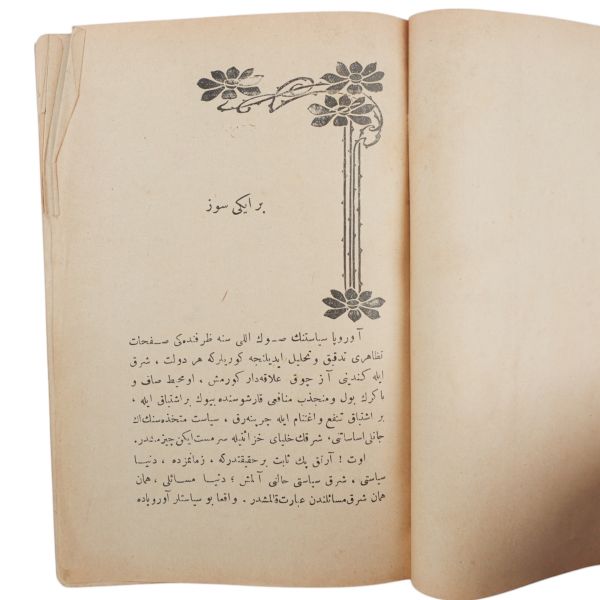 بر ایکی سوز
آوروپا سیاستنك صوك اللی سنه ظرفنده‌کی صفحات
تظاهری تدقیق و تحلیل ایدیلنجه کوریلرکه هر دولت ، شرق
ایله کندینی آز چوق علاقه‌دار کورمش ، او محیط صاف و
باکرك بول و منجذب منافعی قارشوسنده بیوك بر اشتیاق ایله ،
بر اشتیاق تنفع و اغتنام ایله چرپینه‌رق ، سیاست متخذه‌سنك اك
جانلی اساساتنی ، شرقك خلیای خزائنیله سرمست ایکن چیزمه‌در.
اوت ! آرتق پك ثابت بر حقیقتدرکه ، زمانمزده ، دنیا
سیاستی ، شرق سیاستی حالنی آلمش ؛ دنیا مسائلی ، همان
همان شرق مسائلندن عبارت قالمشدر . واقعا بو سیاستلر آوروپاده